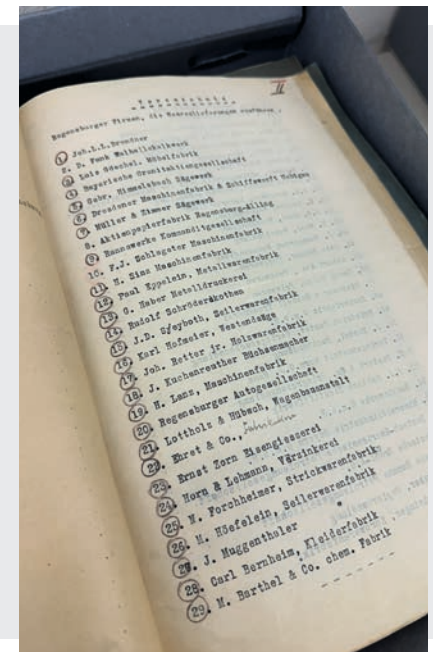 II
Verzeichnis
Regensburger Firmen, die Heereslieferungen ausführen.
1. Joh.L.L.Brandner
2. D. Funk Walhallakalkwerk
3. Lois Göschel, Möbelfabrik
4. Bayerische Granitaktiengesellschaft
5. Gebr. Himmelsbach Sägewerk
6. Dresdener Maschinenfabrik & Schiffswerft Uebigau
7. Müller & Zimmer Sägewerk
8. Aktienpapierfabrik Regensburg-Alling
9. Hannawerke Kommanditgesellschaft
10. F.J. Schlageter Maschinenfabrik
11. H. Sinz Maschinenfabrik
12. Paul Eppelein, Metallwarenfabrik
13. G. Haber Metalldruckerei
14. Rudolf Schröderskothen
15. J.D. Seyboth, Seilerwarenfabrik
16. Karl Hofmeier, Westendsäge
17. Joh. Retter jr. Holzwarenfabrik
18. J. Kuchenreuther Büchsenmacher
19. H. Lanz, Maschinenfabrik
20. Regensburger Autogesellschaft
21. Lottholz & Hübsch, Wagenbauanstalt
22. Ehret & Co.,
23. Ernst Zorn Eisengiesserei
24. Horn & Lehmann, Verzinkerei
25. M. Forchheimer, Strickwarenfabrik
26. M. Höefelein, Seilerwarenfabrik
27. J. Muggenthaler "
28. Carl Bernheim, Kleiderfabrik
29. M. Barthel & Co. chem. Fabrik